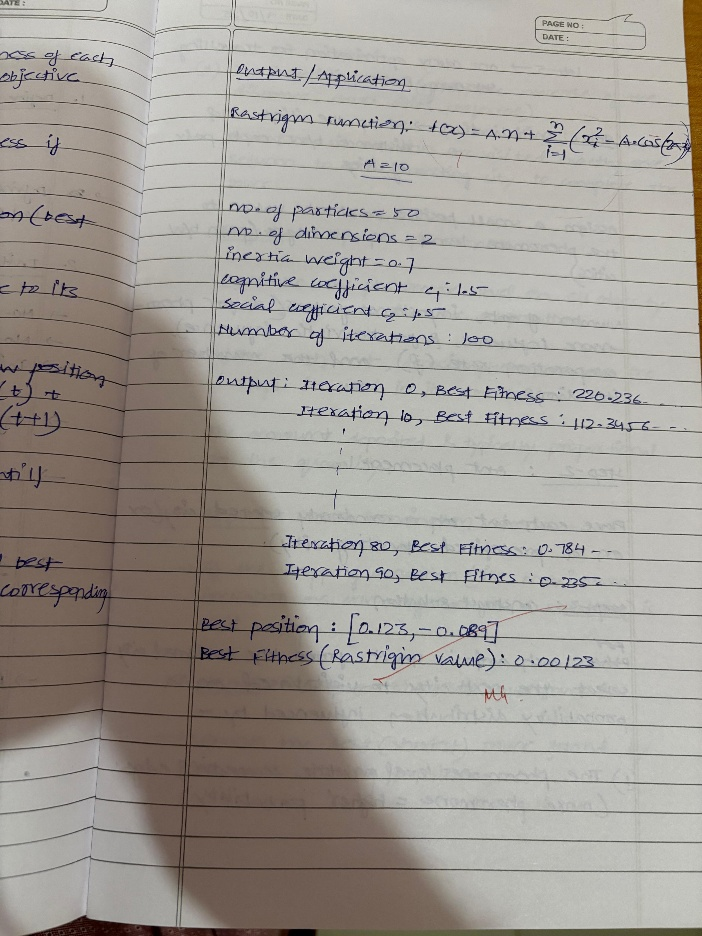 DATE :
ness of each
objective
ess if
on (best
c to its
w position
(t) +
(t+1)
ntil
best
corresponding
PAGE NO :
DATE :
Output / Application
Rastrigin Function: f(x) = A.n + n Σ i=1 (x_i^2 - A.cos(2πx_i))
A=10
no. of particles = 50
no. of dimensions = 2
inertia weight = 0.7
cognitive coefficient c1 : 1.5
social coefficient c2 : 1.5
Number of iterations : 100
Output : Iteration 0, Best Fitness : 220.236...
Iteration 10, Best Fitness : 112.3456- - -
Iteration 80, Best Fitness : 0.784 - -
Iteration 90, Best Fitnes : 0.235- ..
Best position : [0.123, -0.089]
Best Fitness (Rastrigin value) : 0.00123